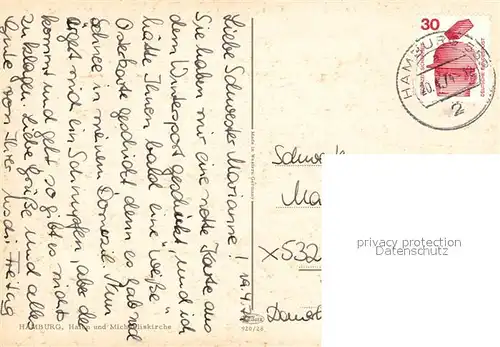 Liebe Schwester Marianne!
19.4.
Sie haben mir eine nette Karte aus
dem Wintersport geschickt, und ich
hätte Ihnen bald eine "weiße"
Osterkarte geschickt denn es lag viel
Schnee in meinem Domizil. Nun
ärgert mich ein Schnupfen, aber der
kommt und geht so gibt es nichts
zu klagen. Liebe Grüße und alles
Gute von Ihrer Freitag
HAMBURG, Hafen und Michaeliskirche
920/28
Made in Western-Germany
30
HAMBURG
2
Schwester
Ma
x532
privacy protection
Datenschutz